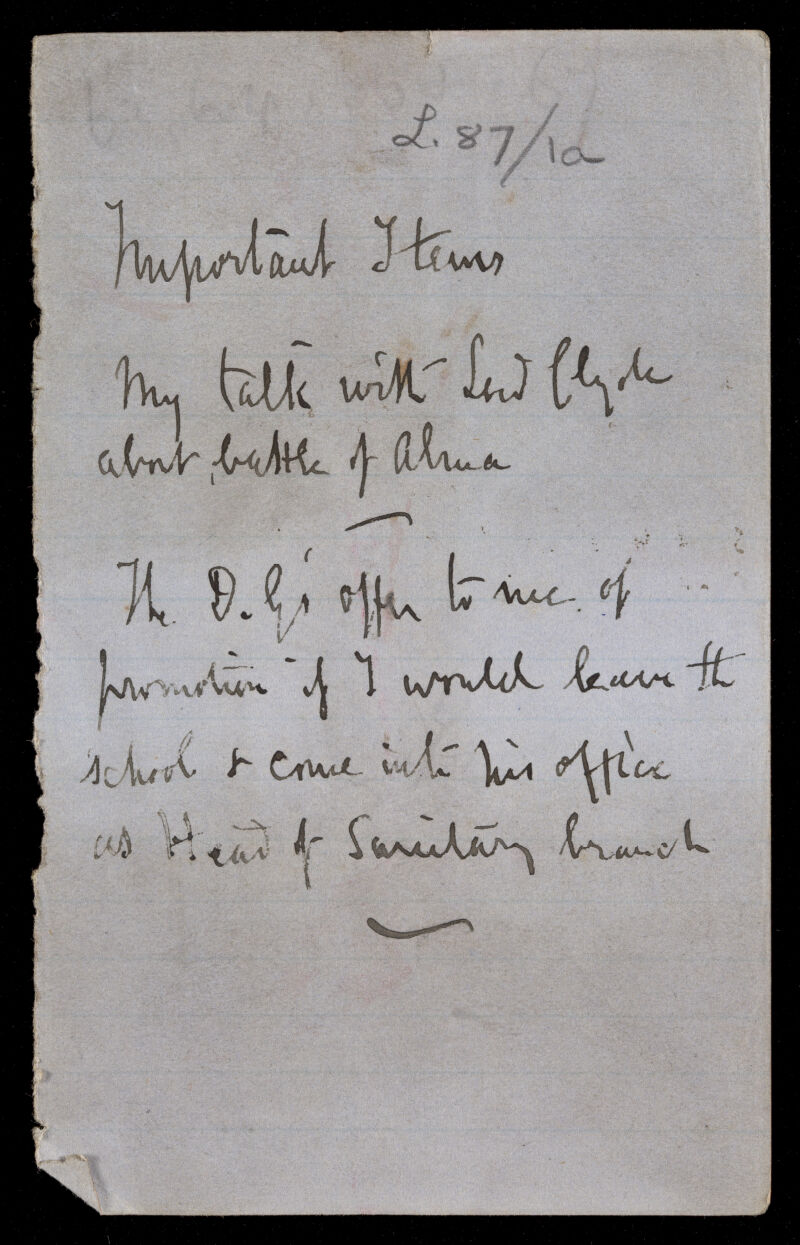 L. 87/1a
Important Items
My talk with Lord Clyde
about battle of Alma
The D.G's offer to me of
promotion if I would leave the
school & come into his office
as Head of Sanitary branch